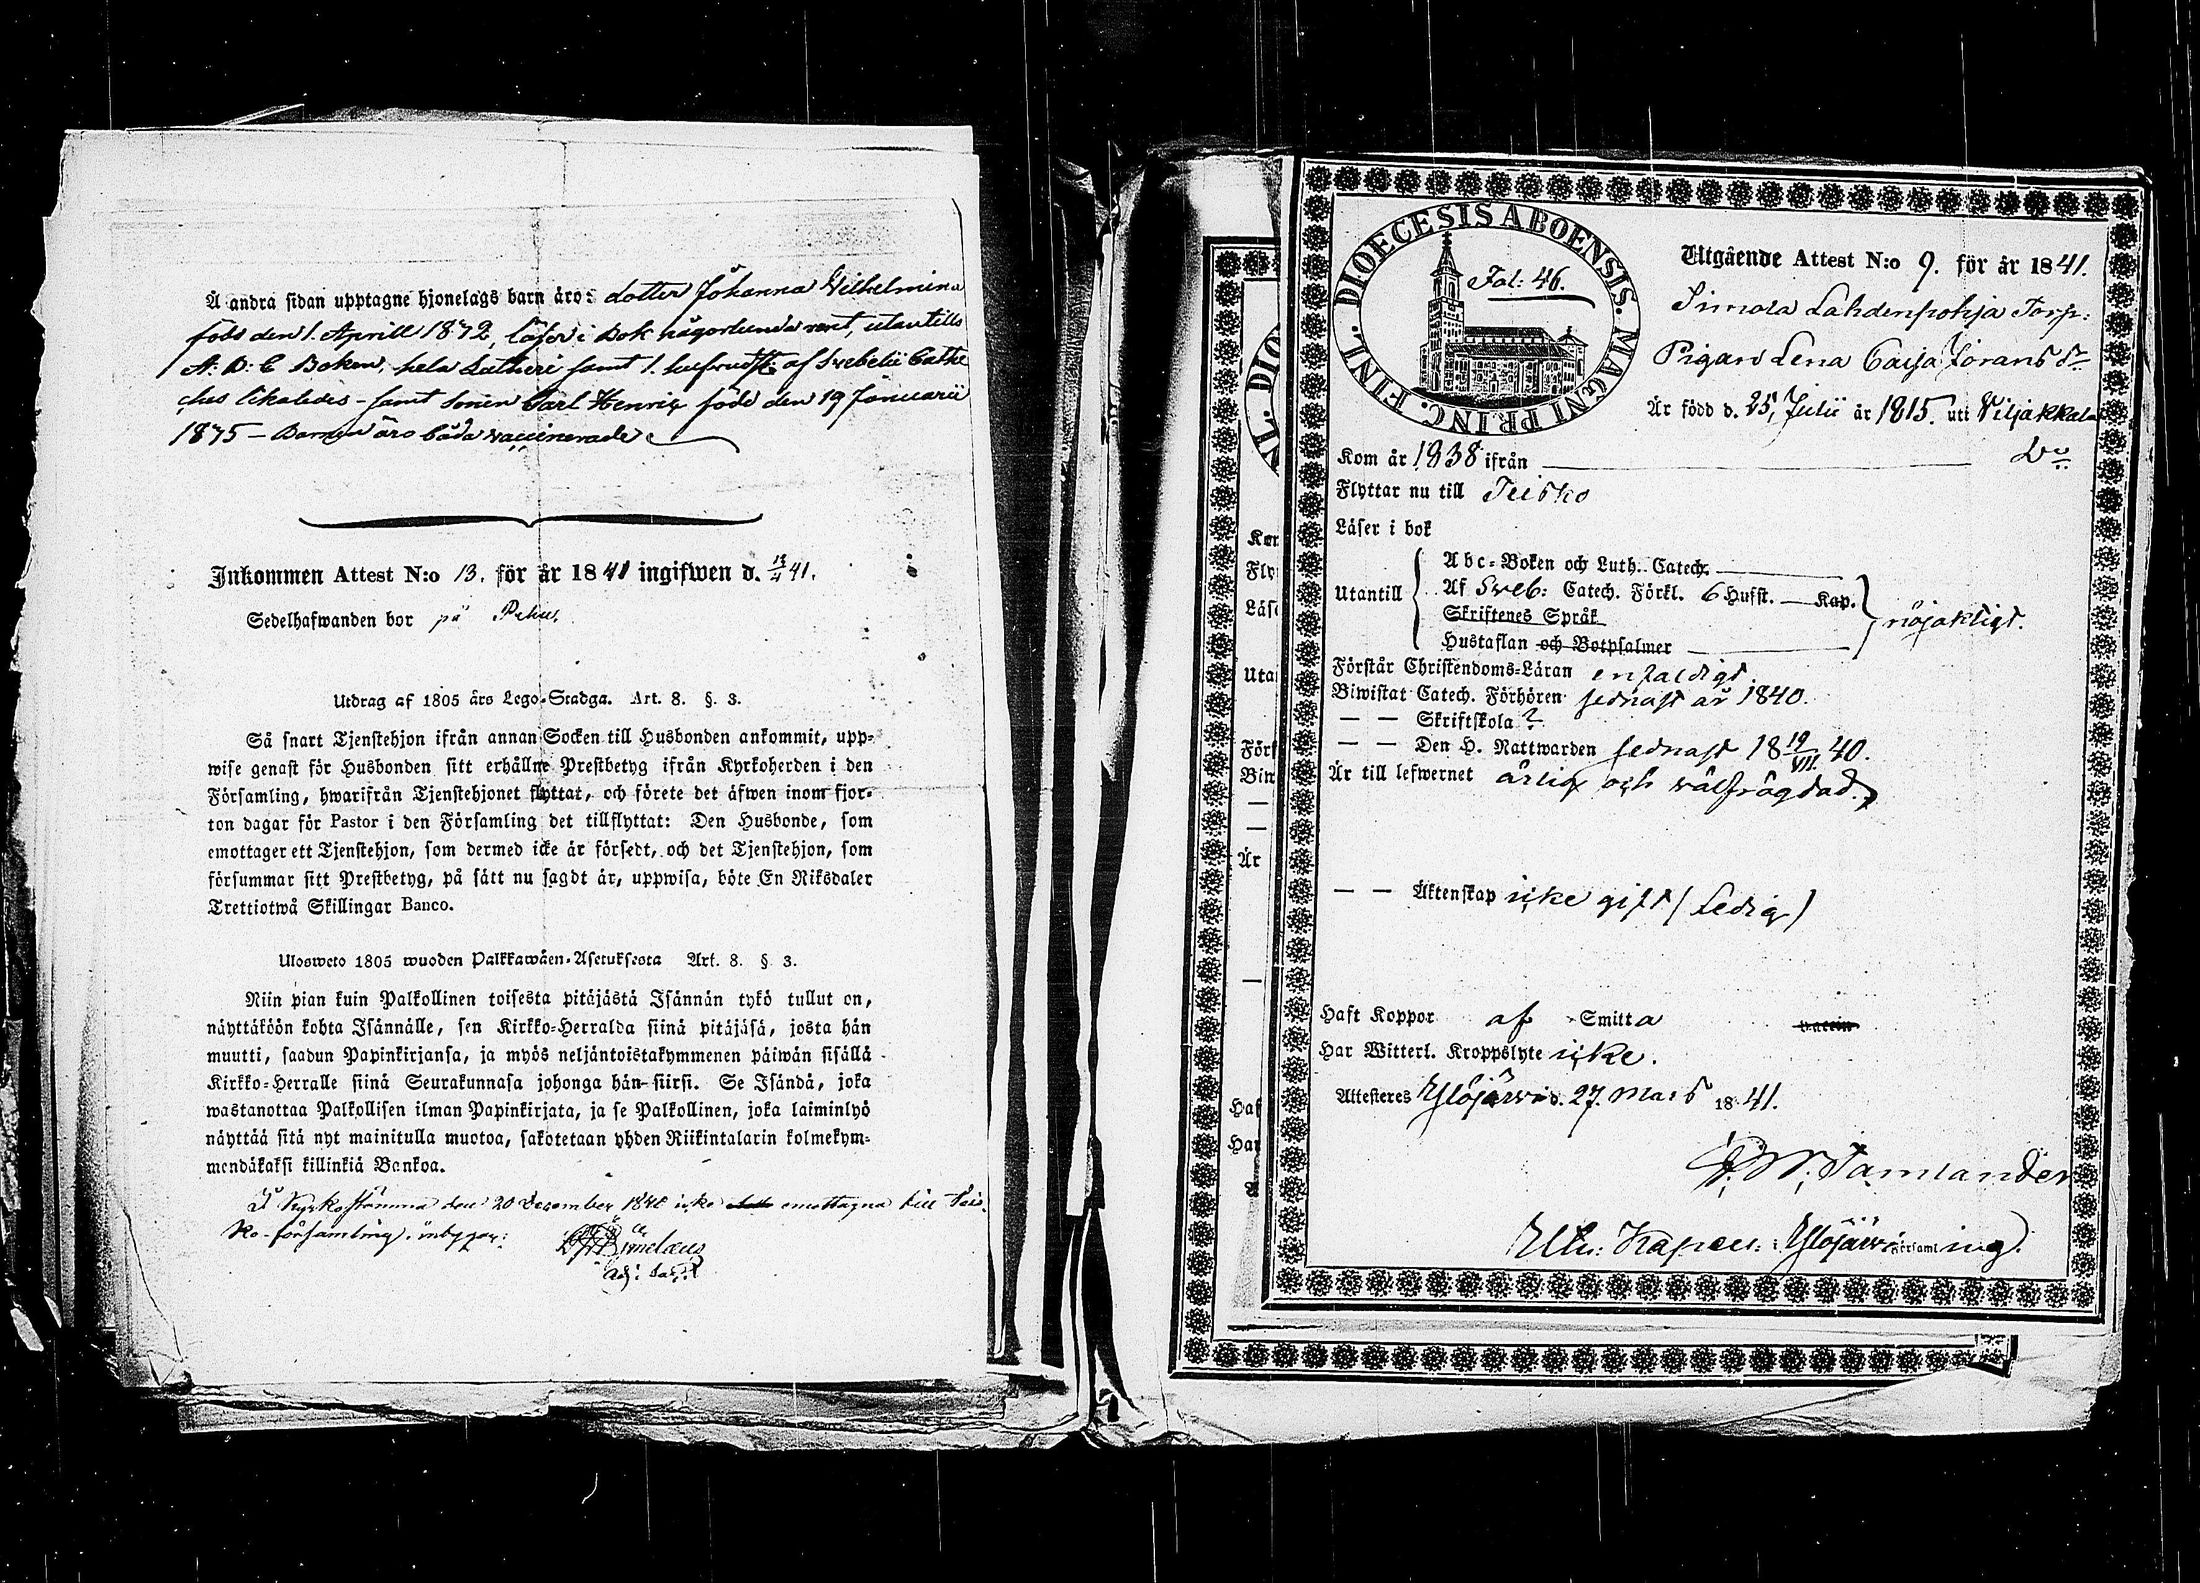 Å andra sidan upptagne hjonelags barn äro: dotter Johanna Wilhelmina
född den 1. Aprill 1832, läser i Bok någorlunda rent, utantills
A. B. C Boken, hela Lutheri samt 1. hufvudst: af Svebelii Cathe
ches likaledes - samt sonen Carl Henric född den 19 Januarii
1835 - Barnen äro båda vaccinerade.
Inkommen Attest N:o 13. för år 1841 ingifwen d. 13/4 41.
Sedelhafwanden bor på
Utdrag af 1805 års Lego-Stadga. Art. 8. §. 3.
Så snart Tjenstehjon ifrån annan Socken till Husbonden ankommit, upp-
wise genast för Husbonden sitt erhållne Prestbetyg ifrån Kyrkoherden i den
Församling, hwarifrån Tjenstehjonet flyttat, och förete det äfwen inom fjor-
ton dagar för Pastor i den Församling det tillflyttat: Den Husbonde, som
emottager ett Tjenstehjon, som dermed icke är försedt, och det Tjenstehjon, som
försummar sitt Prestbetyg, på sätt nu sagdt är, uppwisa, böte En Riksdaler
Trettiotwå Skillingar Banco.
Ulosweto 1805 wuoden Palkkawäen-Asetuksesta Art. 8. § 3.
Niin pian kuin Palkollinen toisesta pitäjästä Isännän tykö tullut on,
näyttäköön kohta Isännälle, sen Kirkko-Herralda siinä pitäjäsä, josta hän
muutti, saadun Papinkirjansa, ja myös neljäntoistakymmenen päiwän sisällä
Kirkko-Herralle siinä Seurakunnasa johonga hän siirsi. Se Isändä, joka
wastanottaa Palkollisen ilman Papinkirjata, ja se Palkollinen, joka laiminlyö
näyttää sitä nyt mainitulla muotoa, sakotetaan yhden Riikintalarin kolmekym-
mendäkaksi killinkiä Bankoa.
I Kyrkostämma den 20 December 1840 icke emottagna till Teis-
ko församling. inbyggar:
DIOECESIS ABOENSIS. MAGNI PRINC. FINL.
Fol: 46.
Utgående Attest N:o 9. för år 1841.
Simola Lahdenpohja Torp:
Pigan Lena Caisa Jörans Dr
Är född d. 25, Julii år 1815. uti Viljakkala
Kom år 1838 ifrån
Flyttar nu till Teisko
Läser i bok
Utantill
Abc-Boken och Luth. Catech.
Af Sveb: Catech. Förkl. 6 Hufst. — Kap.
Skriftenes Språk
Hustaflan och Botpsalmer
nöjaktigt.
Förstår Christendoms-Läran enfaldigt
Biwistat Catech. Förhören sednast år 1840.
— — Skriftskola ?
— — Den H. Nattwarden sednast 18 19/VII 40.
Är till lefwernet ärlig och välfrägdad.
— — Äktenskap icke gift (Ledig)
Haft Koppor af Smitta vaccin
Har Witterl. Kroppslyte icke.
Attesteres Ylöjärvi d. 27. Mars 1841.
Tamlander
Kapell: i Ylöjärvi Församling.